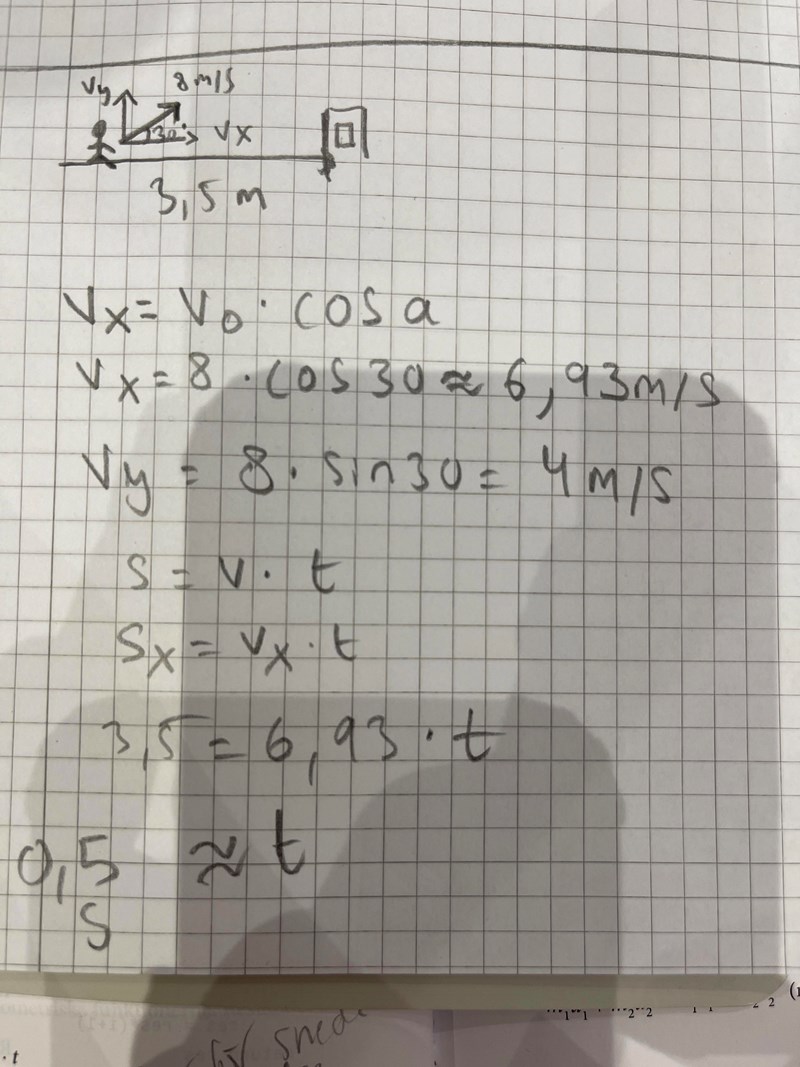 Vy 8 m/s
30° Vx
3,5 m
Vx = V0 · cos a
Vx = 8 · cos 30 ≈ 6,93 m/s
Vy = 8 · sin 30 = 4 m/s
s = v · t
Sx = Vx · t
3,5 = 6,93 · t
0,5 ≈ t
s
· t